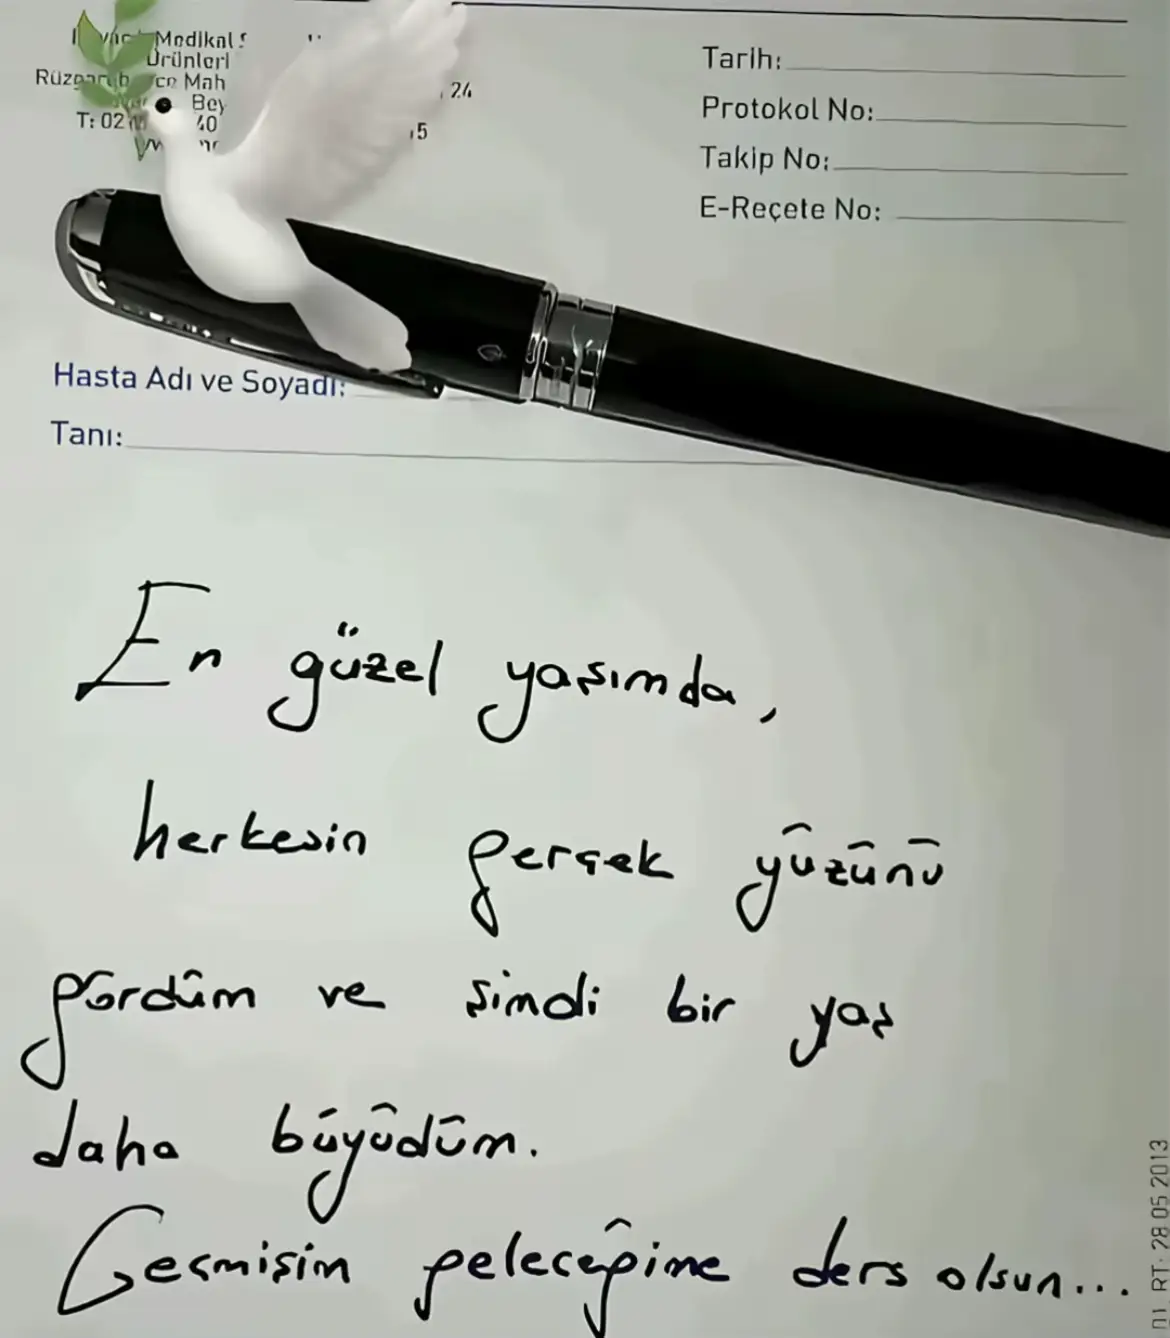 Medikal
Ürünleri
Mah
24
Bey
T: 02 40
5
Tarih:
Protokol No:
Takip No:
E-Reçete No:
Hasta Adı ve Soyadı:
Tanı:
En güzel yaşımda,
herkesin gerçek yüzünü
gördüm ve şimdi bir yaş
daha büyüdüm.
Geçmişim geleceğime ders olsun...
01 RT: 28.05.2013